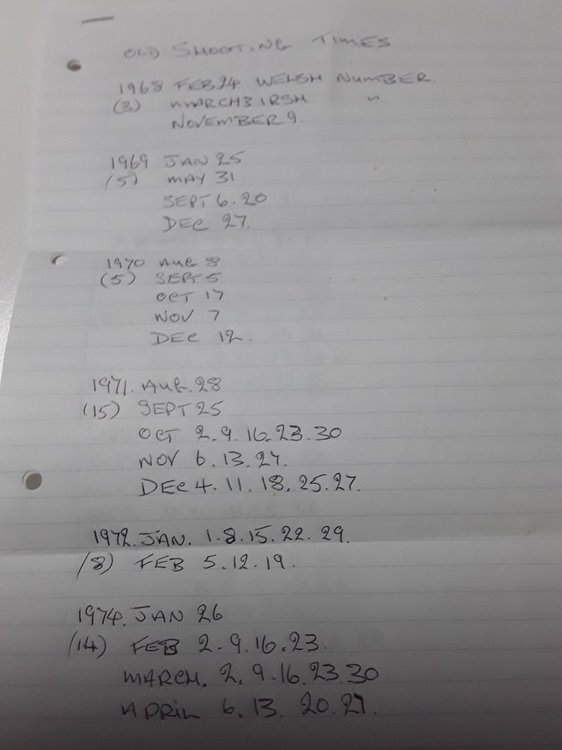 OLD SHOOTING TIMES
1968 FEB 24 WELSH NUMBER
(3) MARCH 3 IRSH "
NOVEMBER 9.
1969 JAN 25
(5) MAY 31
SEPT 6.20
DEC 27.
1970 AUG 8
(5) SEPT 5
OCT 17
NOV 7
DEC 12.
1971. AUG. 28
(15) SEPT 25
OCT 2.9.16.23.30
NOV 6.13.27.
DEC 4.11.18.25.27.
1972. JAN. 1.8.15.22.29.
(8) FEB 5.12.19.
1974. JAN 26
(14) FEB 2.9.16.23.
MARCH. 2.9.16.23.30
APRIL 6.13.20.27.